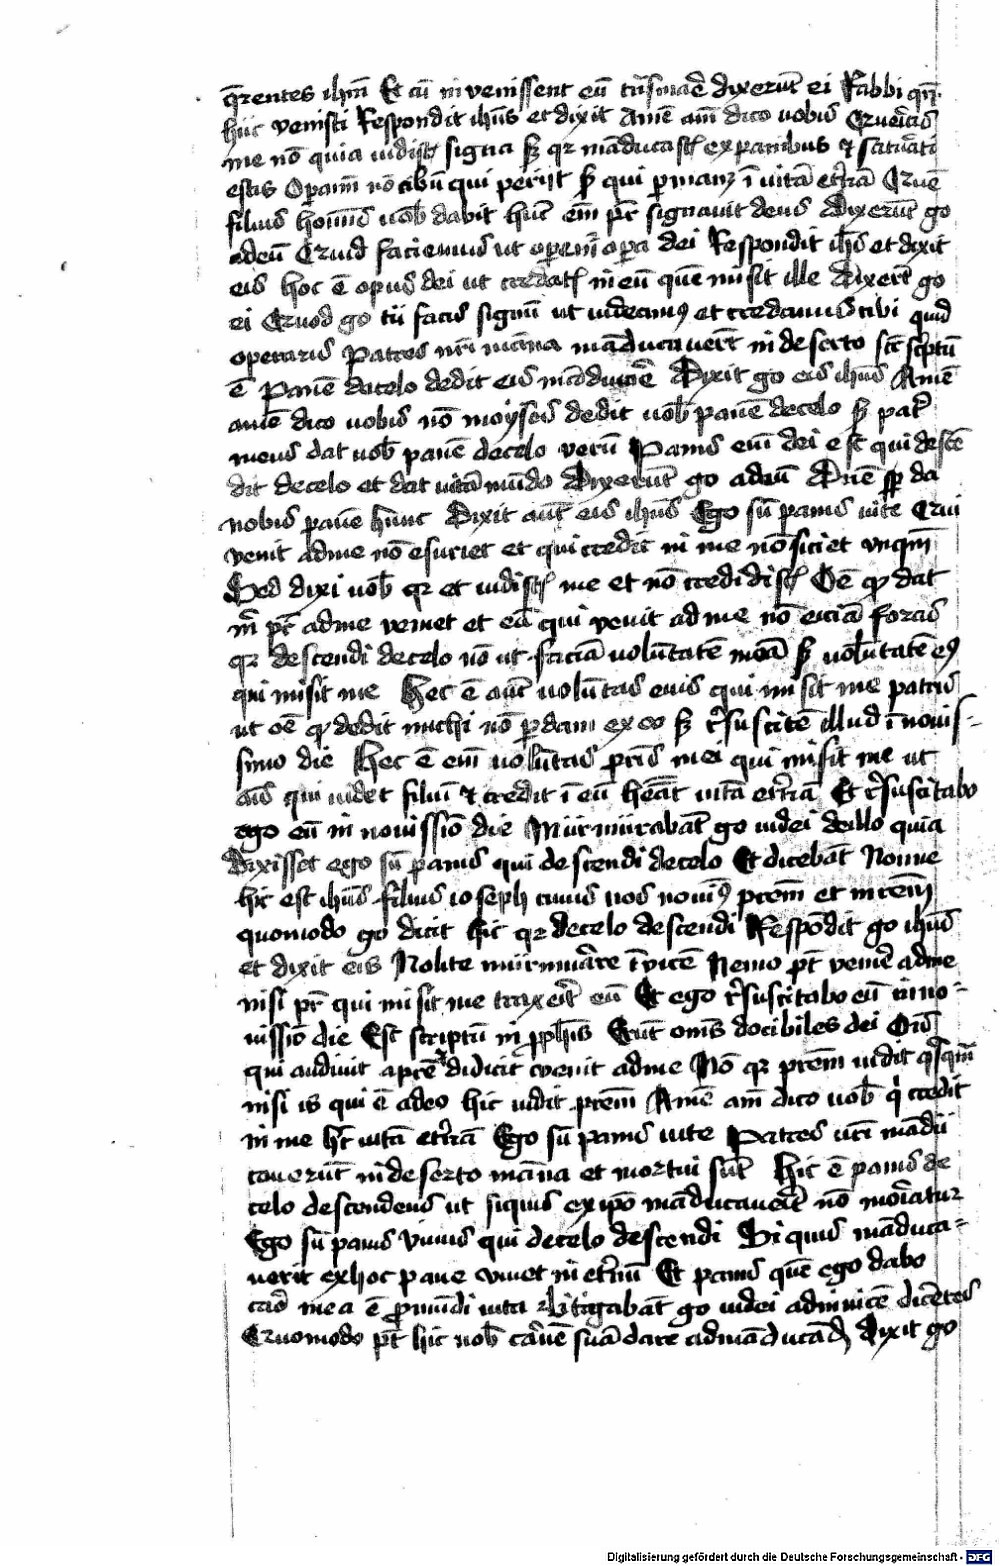 q̄rentes ihm̄ Et cū invenissent eū tͣnsmaē dixerūt ei Rabbi qn̄
huc venisti Respondit ihūs et dixit Amē am̄ dico vobis Queritis
me nō quia vidistꝭ signa sꝫ qꝛ māducastꝭ ex panibus ⁊ saturati
estis Opamī nō cibū qui perijt sꝫ qui ꝑmanꝫ ī vitā et̄nā Quē
filius hoīnis vob̄ dabit hūc em̄ pr̄ signavit deus Dixerūt go
ad eū Quid faciemus ut operem̄ opa dei Respondit ihūs et dixit
eis hoc ē opus dei ut credatꝭ in eū quē misit ille Dixerūt go
ei Quod go tu facis signū ut videamꝰ et credamus tibi quid
operaris Patres nr̄i māna māducaverūt in deserto sic̄ scp̄tū
ē Panē de celo dedit eis māducare Dixit go eis ihūs Amē
amē dico vobis nō moyses dedit vob̄ panē de celo sꝫ pat̄
meus dat vob̄ panē de celo verū Panis em̄ dei est qui descē
dit de celo et dat vitā mūdo Dixerūt go ad eū Dn̄e sꝑ da
nobis panē hunc Dixit aūt eis ihūs Ego sū panis vite Qui
venit ad me nō esuriet et qui credit in me nō siciet vnqm̄
Sed dixi vob̄ qꝛ et vidistꝭ me et nō credidistꝭ Oē qd dat
m̄ pr̄ ad me veniet et eū qui venit ad me nō eiciā foras
qꝛ descendi de celo nō ut faciā volūtatē meā sꝫ volūtatē eꝰ
qui misit me Hec ē aūt volūtas eius qui misit me patris
ut oē qd dedit michi nō ꝑdam ex eo sꝫ r̄suscitē illud ī novis-
simo die Hec ē em̄ volūtas pr̄is mei qui misit me ut
ois qui videt filiū ⁊ credit ī eū hēat vitā et̄nā Et r̄suscitabo
ego eū in novissīo die Murmurabāt go iudei de illo quia
dixisset ego sū panis qui de celo descendi Et dicebāt Nonne
hic est ihūs filius ioseph cuius nos novimꝰ pr̄em et mr̄em
quomodo go dicit hic qꝛ de celo descendi Respōdit go ihūs
et dixit eis Nolite murmurare īvicē Nemo pt̄ venire ad me
nisi pr̄ qui misit me traxerit eū Et ego r̄suscitabo eū in no-
vissīo die Est scriptū in ꝓphīs Erūt omēs docibiles dei Ois
qui audivit a pr̄e ⁊ didicit venit ad me Nō qꝛ pr̄em vidit qsqm̄
nisi is qui ē a deo hic vidit pr̄em Amē am̄ dico vob̄ qͥ credit
in me hꝫ vitā et̄nā Ego sū panis vite Patres vr̄i mādu
caverūt in deserto māna et mortui sūt Hic ē panis de
celo descendens ut siquis ex ip̄o māducaverit nō moriatur
Ego sū panis vivus qui de celo descendi Si quis māduca-
verit ex hoc pane vivet in et̄nū Et panis quē ego dabo
caro mea ē ꝓ mūdi vita Litigabāt go iudei ad invicē dicētes
Quomodo pt̄ hic vob̄ carnē suā dare ad māducādū Dixit go
Digitalisierung gefördert durch die Deutsche Forschungsgemeinschaft - DFG